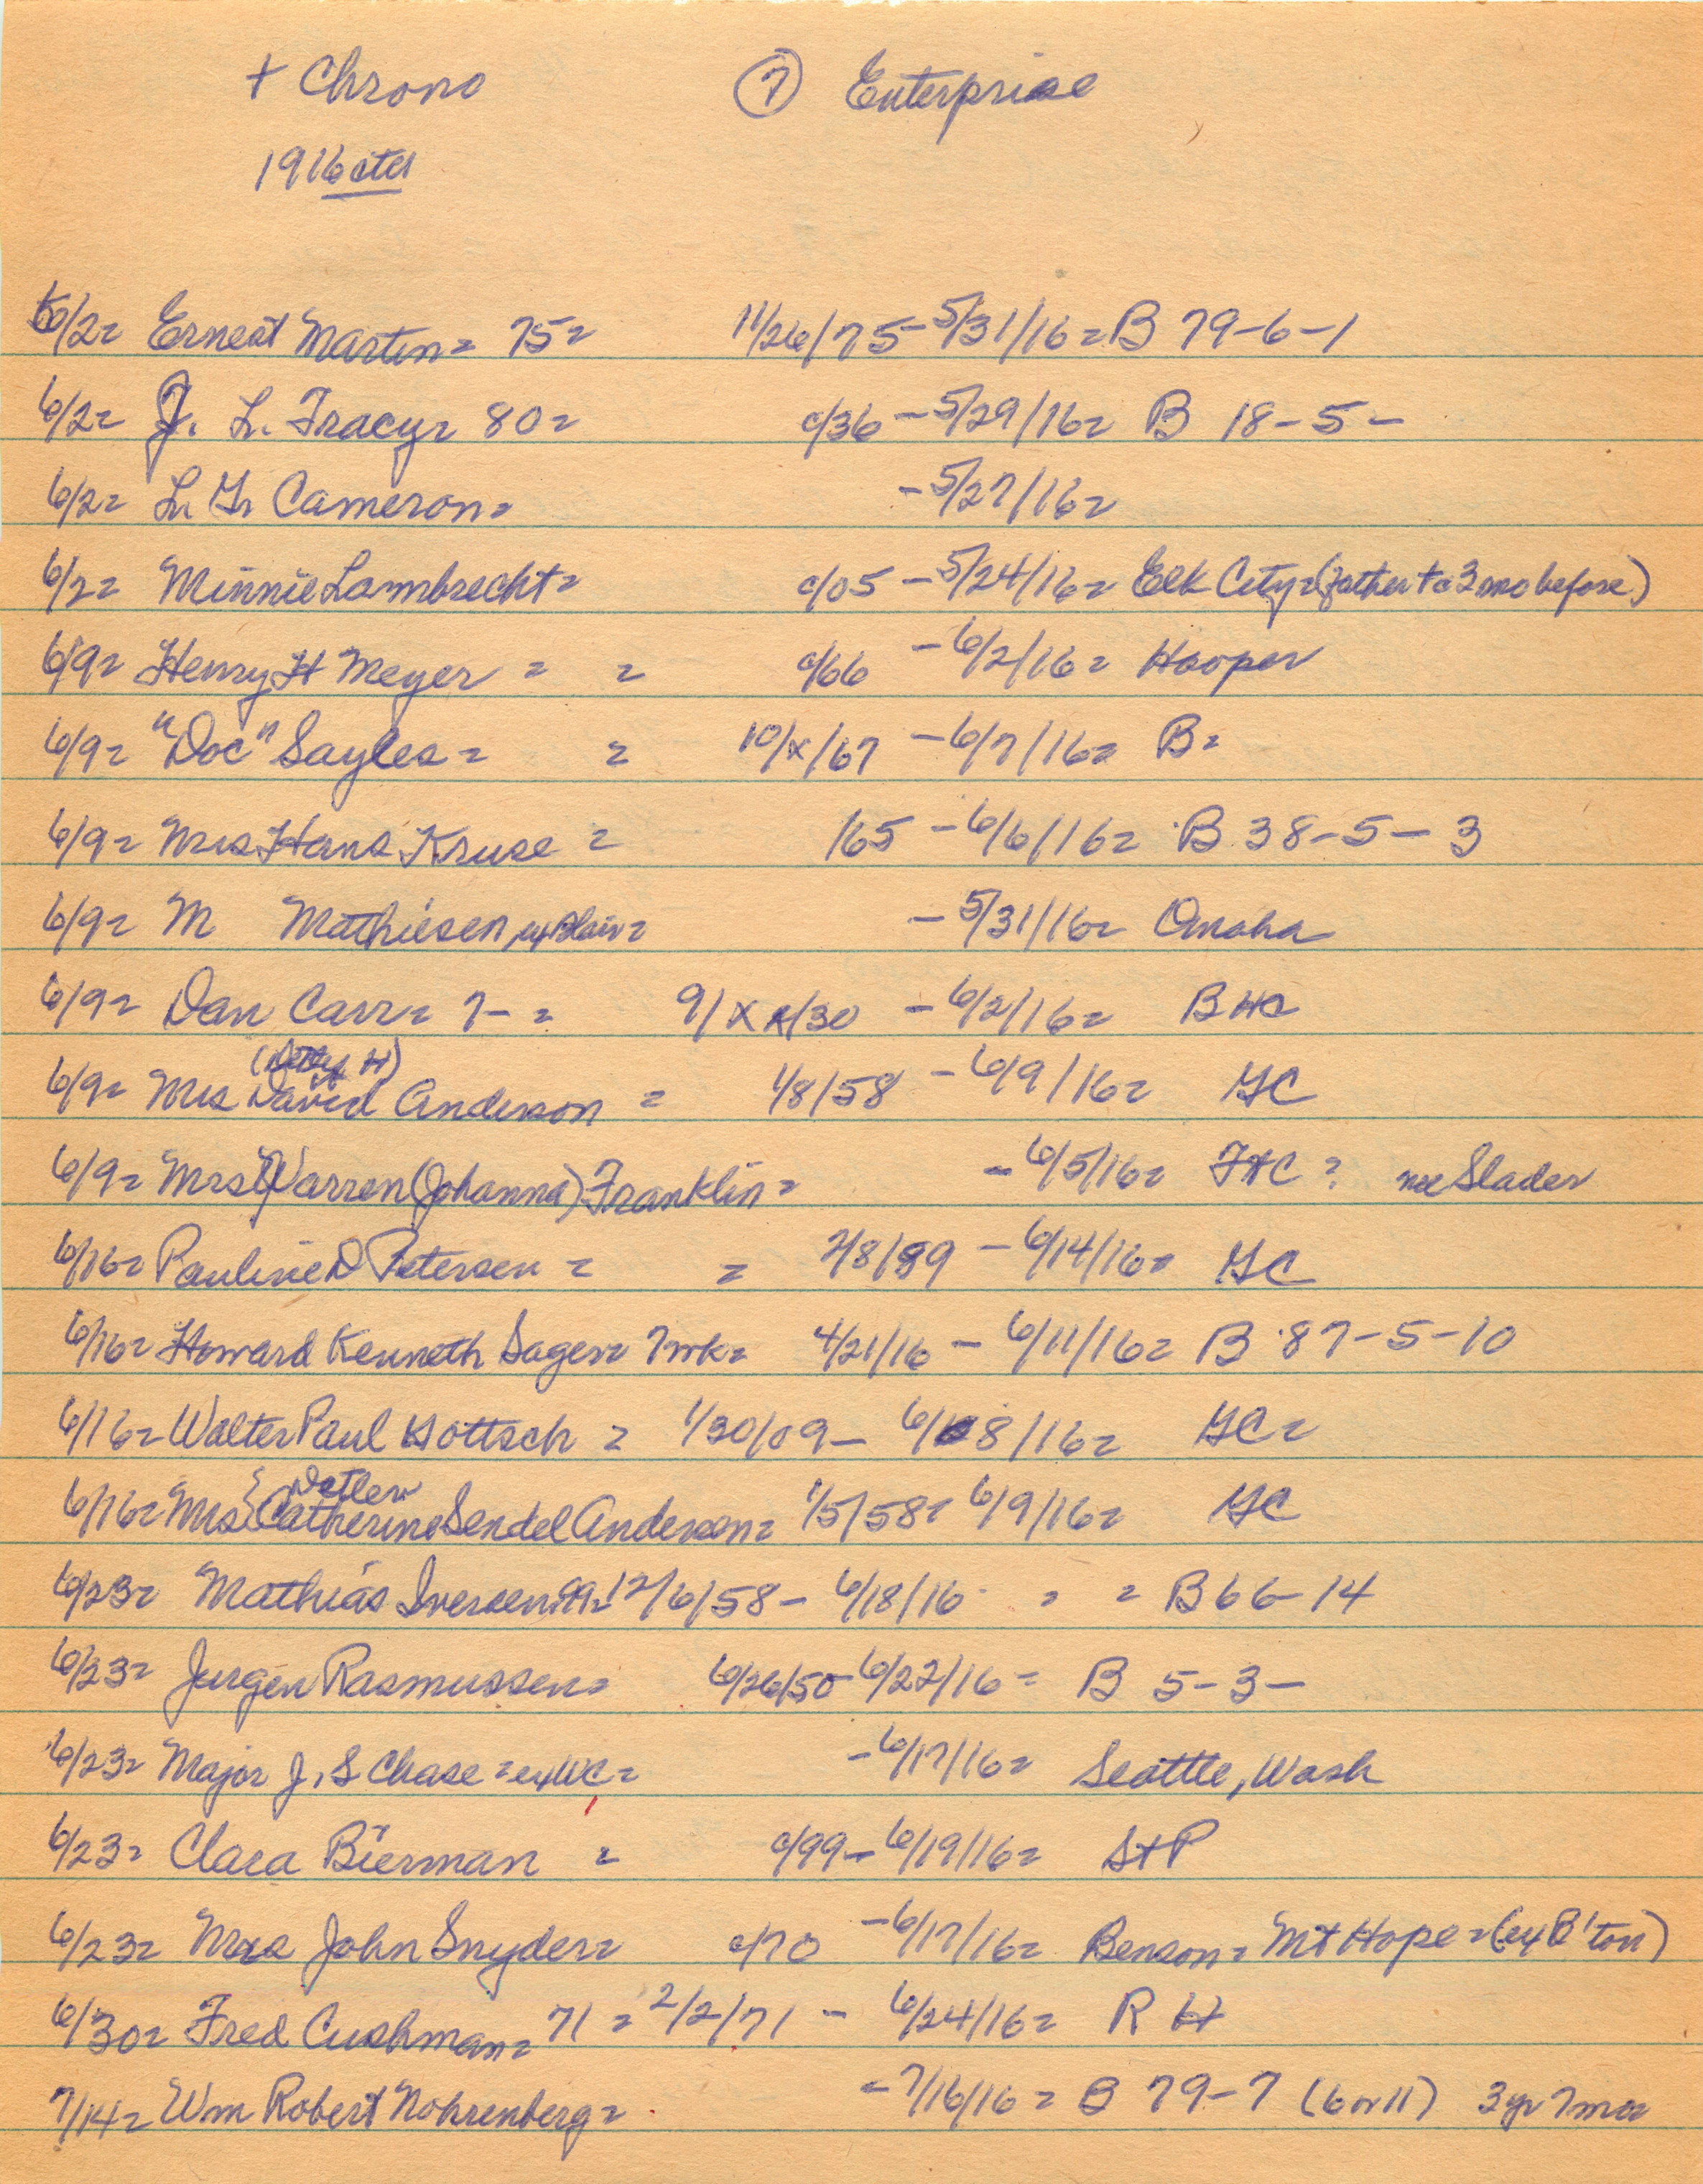 + Chrono ⑦ Enterprise
1916 ctd
6/2= Ernest Martin= 75= 11/26/75-5/31/16= B 79-6-1
6/2= J. L. Tracy= 80= c/36 - 5/29/16= B 18-5-
6/2= L. Cameron= -5/27/16=
6/2= Minnie Lambrecht= c/05 - 5/24/16= Elk City= (father +d 3 mo before)
6/9= Henry H Meyer = = c/66 - 6/2/16= Hooper
6/9= "Doc" Sayles= = 10/x/67 - 6/7/16= B=
6/9= Mrs Hans Kruse = 165 - 6/6/16= B 38-5-3
6/9= M Mathiesen, ex Blair= - 5/31/16= Omaha
6/9= Dan Carr= 7- = 9/xx/30 - 6/2/16= B HC
(Detlef H)
6/9= Mrs David Anderson = 1/8/58 - 6/9/16= GC
6/9= Mrs Warren (Johanna) Franklin= - 6/5/16= FtC ? nee Slader
6/16= Pauline D Petersen = = 2/8/99 - 6/14/16= GC
6/16= Howard Kenneth Sagen= 7wk= 4/21/16 - 6/11/16= B 87-5-10
6/16= Walter Paul Gottsch = 1/30/09 - 6/8/16= GC=
Detlev
6/16= Mrs Catherine Sendel Anderson= 1/5/58= 6/9/16= GC
6/23= Mathias Iversen= 12/6/58 - 6/18/16 = = B 66-14
6/23= Jurgen Rasmussen= 6/26/50-6/22/16= B 5-3-
6/23= Major J, S Chase = ex WC= -6/17/16= Seattle, Wash
6/23= Clara Bierman = c/99-6/19/16= St P
6/23= Mrs John Snyder= c/70 -6/17/16= Benson= Mt Hope=(ex B'ton)
6/30= Fred Cushman= 71 = 2/2/71 - 6/24/16= R H
7/14= Wm Robert Nohrenberg= -7/16/16= B 79-7 (6 or 11) 3yr 7mo=